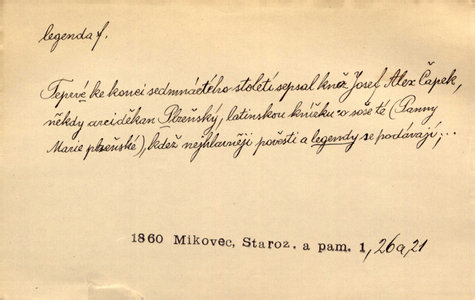 legenda f.
Teprvé ke konci sedmnáctého století sepsal kněz Josef Alex Čapek,
někdy arciděkan Plzeňský, latinskou knížku o soše té (Panny
Marie plzeňské), kdež nejhlavněji pověsti a legendy se podávají;...
1860 Mikovec, Staroz. a pam. 1, 26a,21